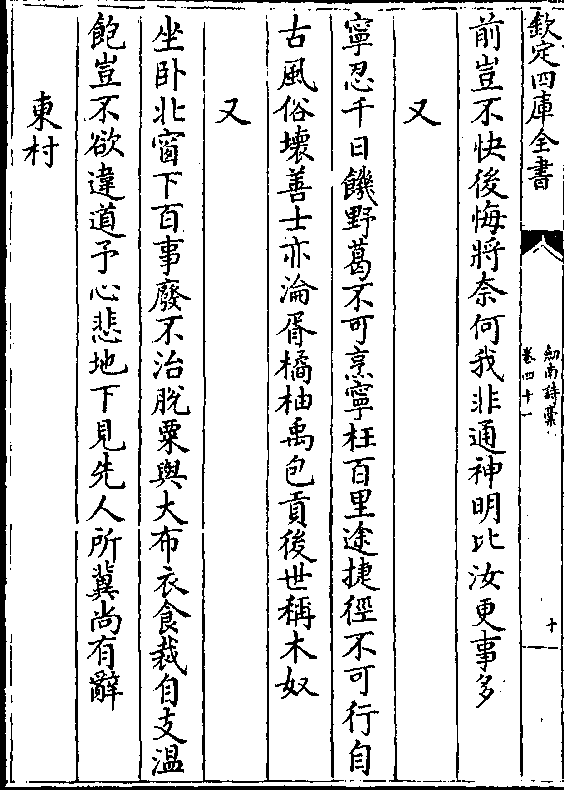 欽定四庫全書
劍南詩藁
卷四十一
十
前豈不快後悔將奈何我非通神明比汝更事多
又
寧忍千日饑野葛不可烹寧枉百里途捷徑不可行自
古風俗壞善士亦淪胥橘柚禹包貢後世稱木奴
又
坐卧北窗下百事廢不治脫粟與大布衣食裁自支溫
飽豈不欲違道予心悲地下見先人所冀尚有辭
東村